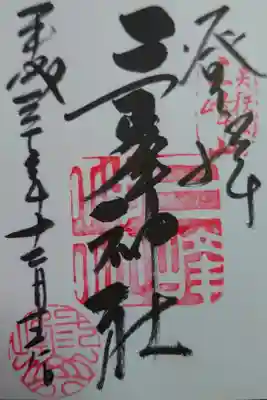 登拝
三峯神社
平成三十年十二月吉日